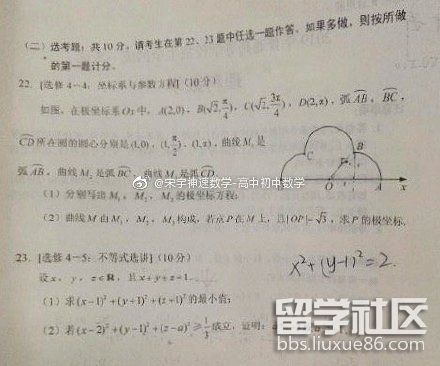 (二)选考题：共10分，请考生在第22、23题中任选一题作答。如果多做，则按所做
的第一题计分。
22. [选修4-4：坐标系与参数方程] (10分)
如图，在极坐标系Ox中，A(2,0)，B(√2,π/4)，C(√2,3π/4)，D(2,π)，弧AB，BC，
CD所在圆的圆心分别是(1,0)，(1,π/2)，(1,π)，曲线M₁是
弧AB，曲线M₂是弧BC，曲线M₃是弧CD.
(1) 分别写出M₁，M₂，M₃的极坐标方程；
(2) 曲线M由M₁，M₂，M₃构成，若点P在M上，且|OP|=√3，求P的极坐标.
C
B
P
O
A
x
@宋宇神速数学-高中初中数学
23. [选修4-5：不等式选讲] (10分)
设x，y，z∈R，且x+y+z=1.
(1) 求(x-1)²+(y+1)²+(z+1)²的最小值；
(2) 若(x-2)²+(y-1)²+(z-a)²≥1/3成立，证明：a
x²+(y-1)²=2
留学社区
bbs.liuxue86.com